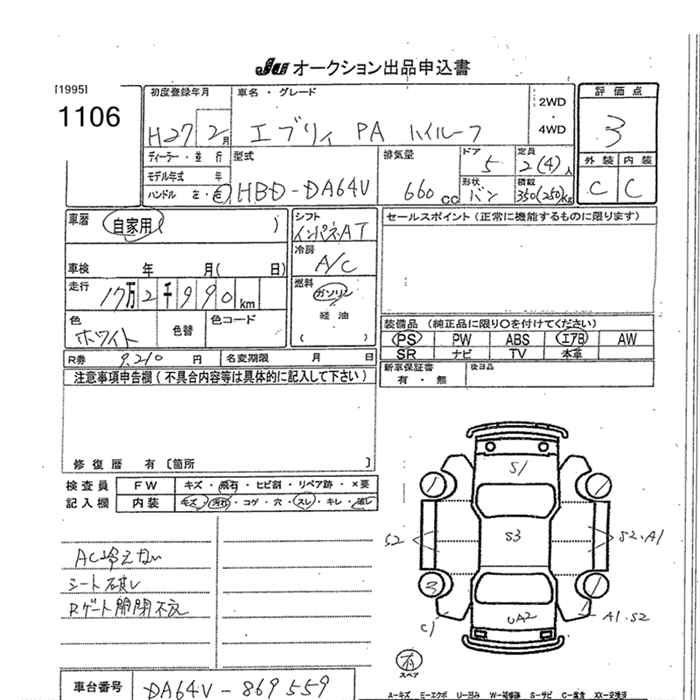 JU オークション出品申込書
[1995]
1106
初度登録年月
H27 2月
車名・グレード
エブリィ PA ハイルーフ
2WD
・
4WD
評価点
3
外装 内装
C C
ディーラー・並行
モデル年式 年
ハンドル 左・右
型式
HBD-DA64V
排気量
660cc
ドア
5
定員
2(4)人
形状
バン
積載
350(250)Kg
車歴
自家用 )
車検 年 月( 日)
走行
17万2千990km
色
ホワイト
色替
色コード
シフト
インパネAT
冷房
A/C
燃料
ガソリン
・
軽油
( )
セールスポイント (正常に機能するものに限ります)
装備品 (純正品に限り〇を付けてください)
PS PW ABS エアB AW
SR ナビ TV 本革
R券 9,210円 名変期限 月 日
新車保証書
有・無
後日品
注意事項申告欄 (不具合内容等は具体的に記入して下さい)
修復歴 有〔箇所 〕
検査員
記入欄
FW キズ・飛石・ヒビ割・リペア跡・×要
内装 キズ・汚れ・コゲ・穴・スレ・キレ・破レ
AC冷えない
シート破レ
Rゲート開閉不良
S1
S3
S2
S2・A1
3
C1
UA2
A1・S2
スペア
車台番号 DA64V-869559
A-キズ E-エクボ U-凹み W-補修跡 S-サビ C-腐食 XX-交換済